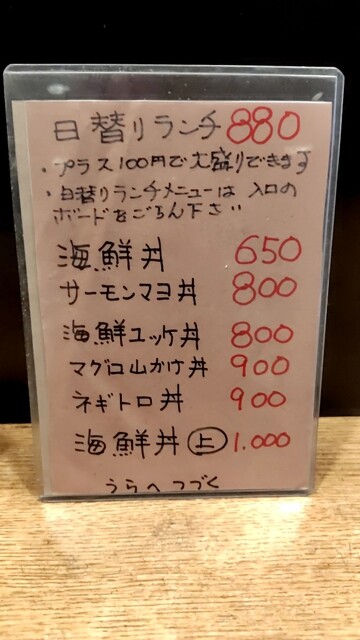 日替りランチ 880
・プラス100円で大盛りできます
・日替りランチメニューは 入口の
ボードをごらん下さい
海鮮丼 650
サーモンマヨ丼 800
海鮮ユッケ丼 800
マグロ山かけ丼 900
ネギトロ丼 900
海鮮丼 上 1.000
うらへつづく